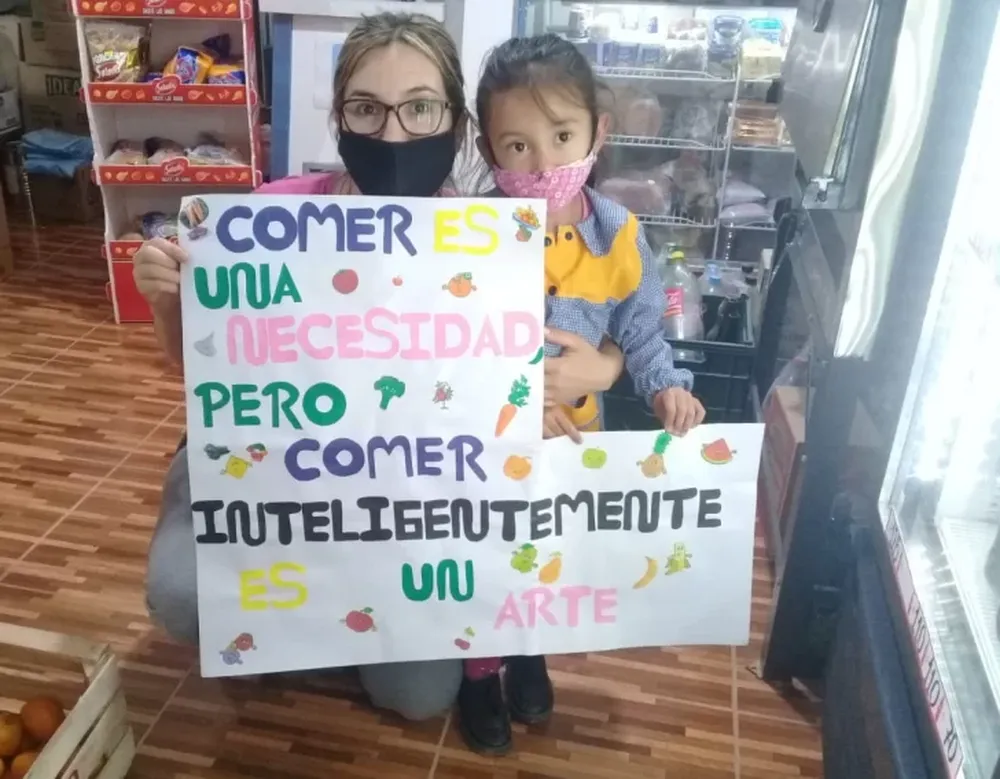 COMER ES
UNA
NECESIDAD
PERO
COMER
INTELIGENTEMENTE
ES UN
ARTE